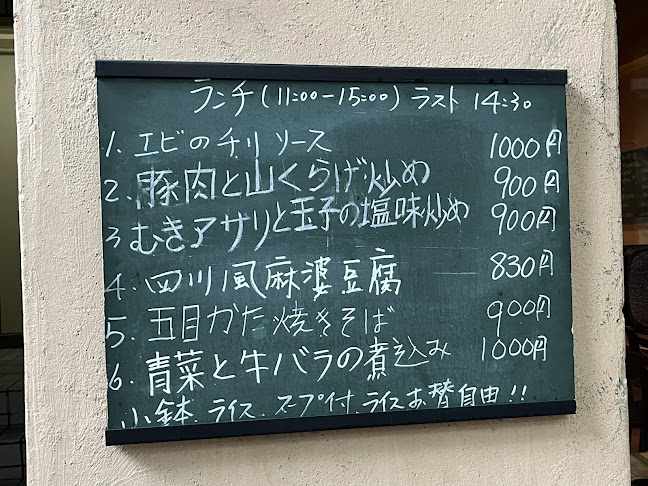 ランチ(11:00-15:00)ラスト 14:30
1. エビのチリソース 1000円
2. 豚肉と山くらげ炒め 900円
3 むきアサリと玉子の塩味炒め 900円
4. 四川風麻婆豆腐 830円
5. 五目かた焼きそば 900円
6. 青菜と牛バラの煮込み 1000円
小鉢、ライス、スープ付、ライスお替自由!!